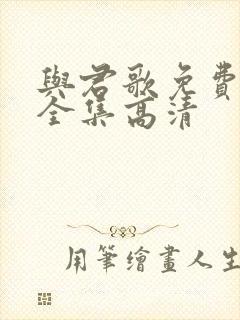 與君歌免費
全集高清
用筆繪畫人生